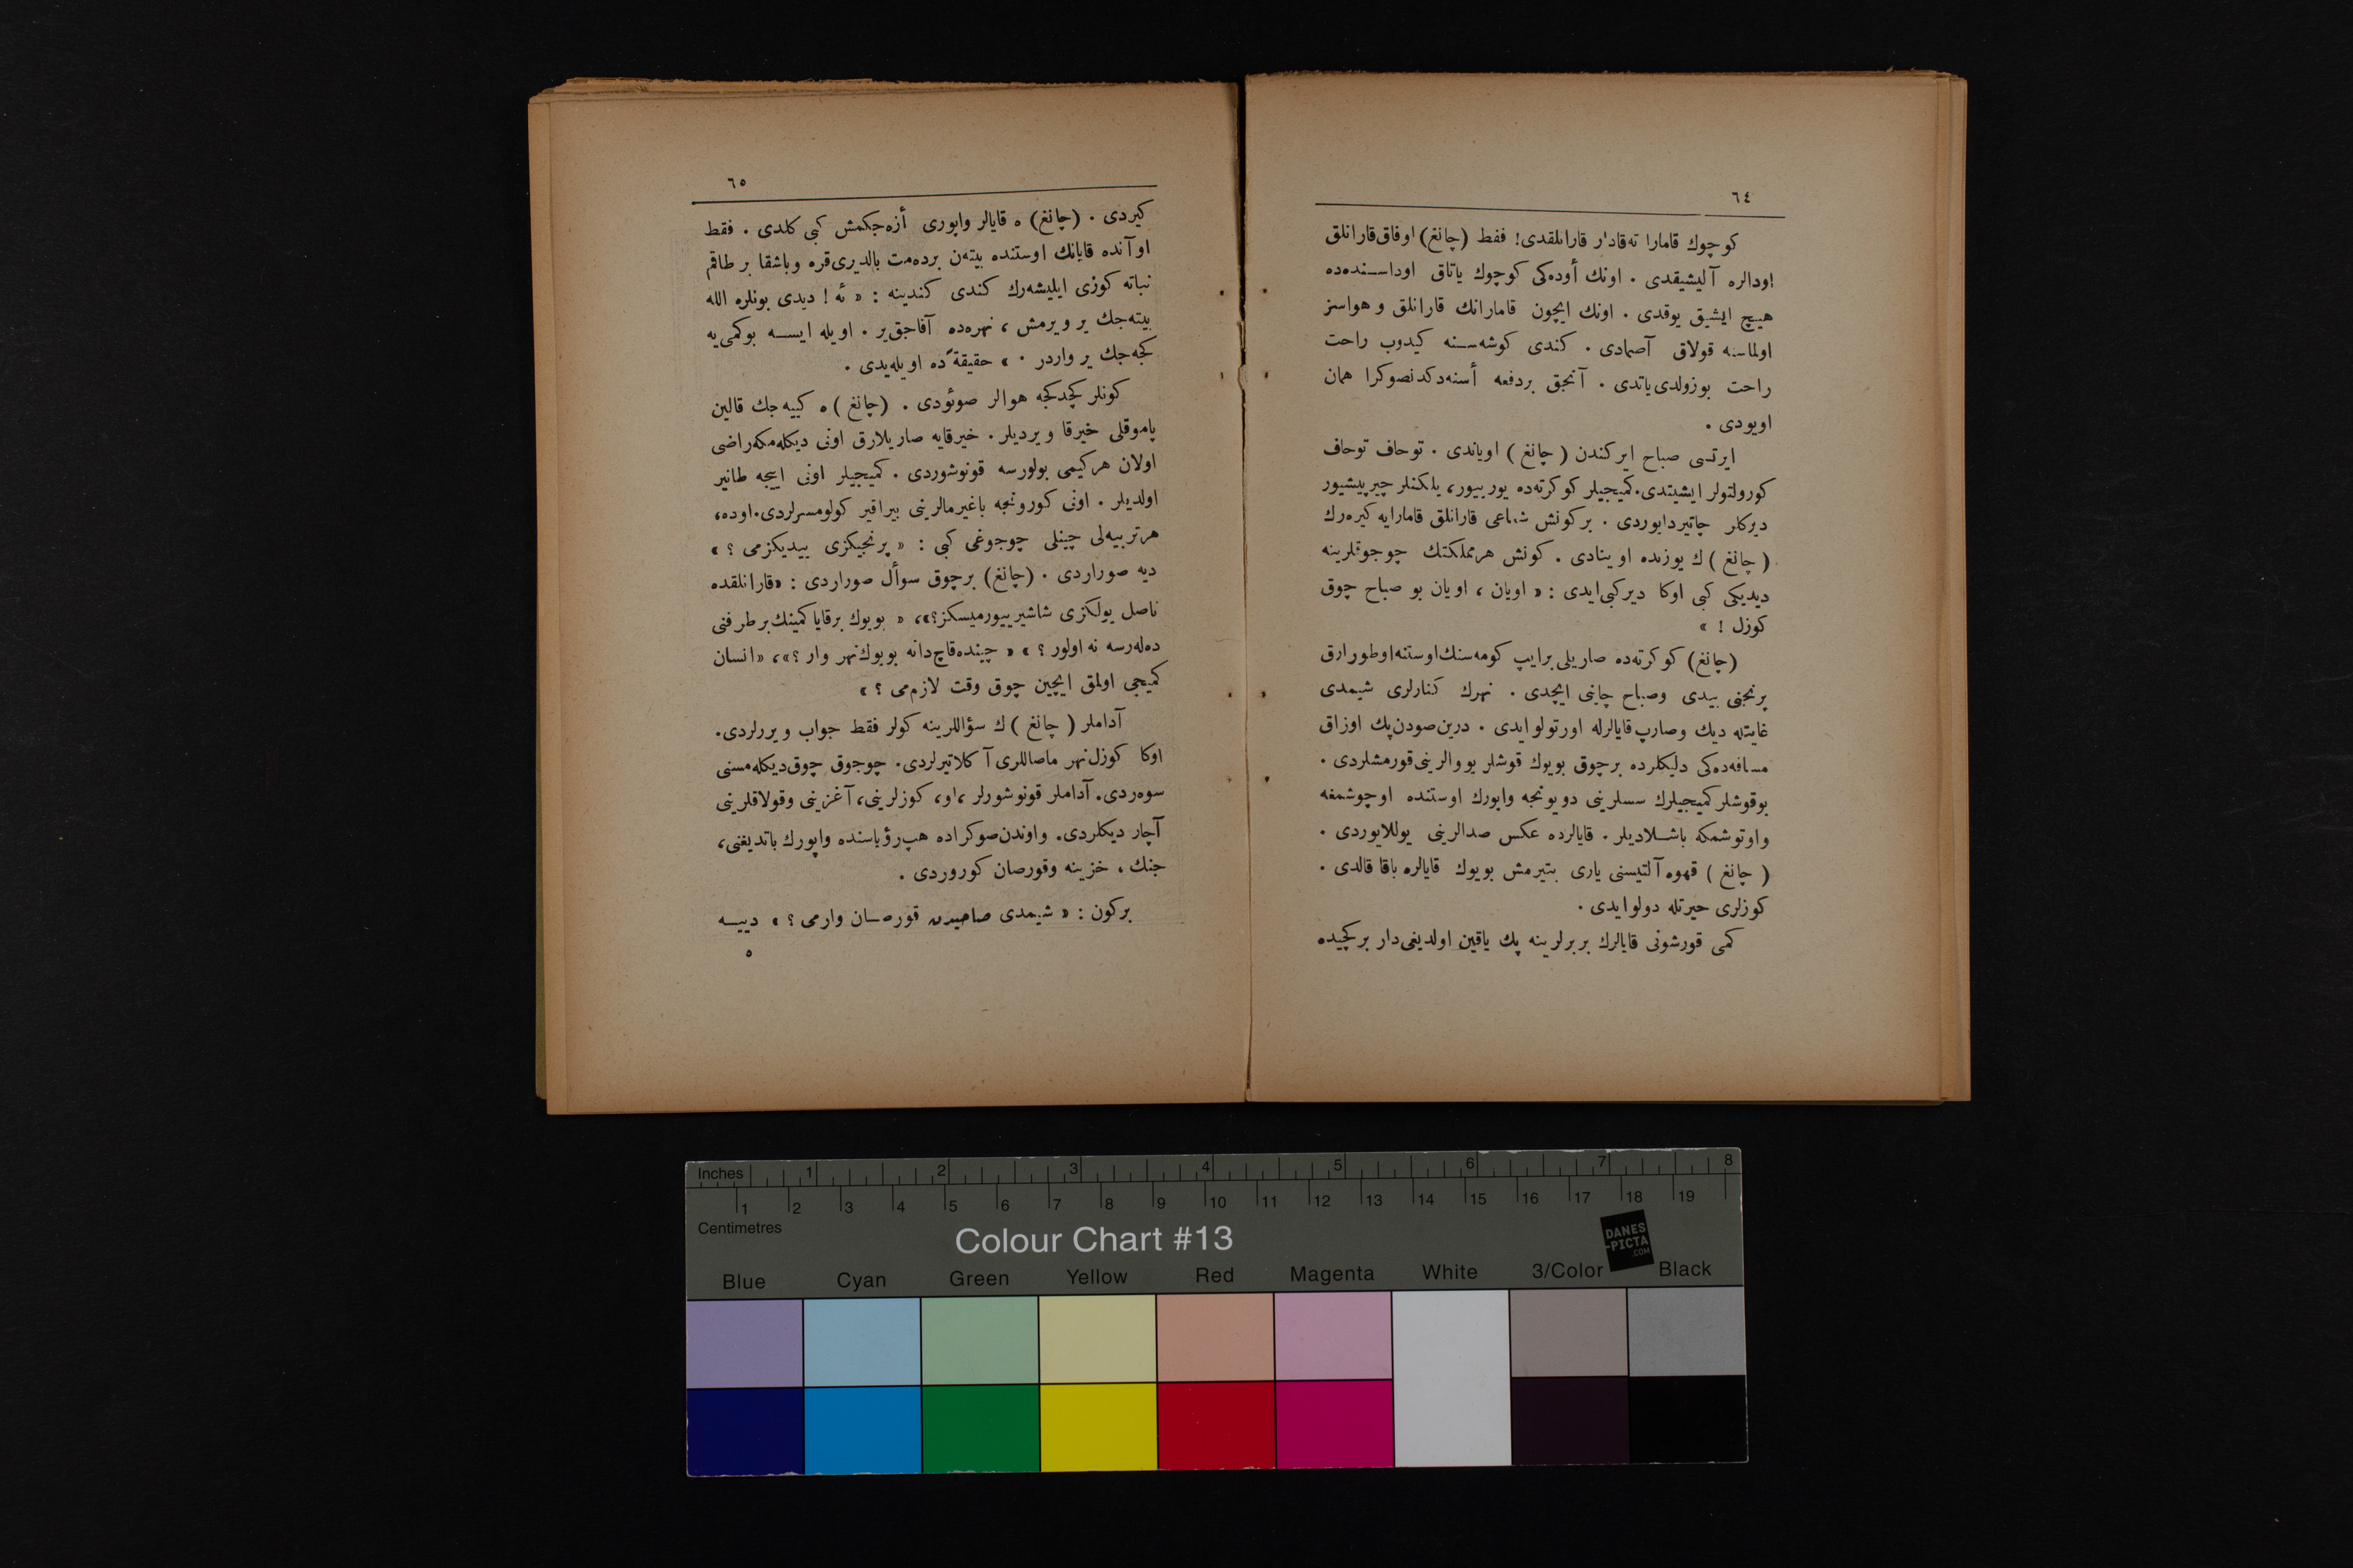 ٦٤
كوچوك قامارا نه‌قادار قارانلقدی! فقط (چانغ) اوفاق قارانلق
اودالره آلیشیقدی . اونك أوده‌كی كوچوك یاتاق اوداسنده‌ده
هیچ ایشیق یوقدی . اونك ایچون قامارانك قارانلق و هواسز
اولماسنه قولاق آصمادی . كندی كوشه‌سنه كیدوب راحت
راحت بوزولدی یاتدی . آنجق بردفعه أسنه‌دكدنصوكرا همان
اویودی .
ایرتسی صباح ایركندن ( چانغ ) اویاندی . توحاف توحاف
كورولتولر ایشیتدی. كمیجیلر كوكرته‌ده یورییور، یلكنلر چیرپیشیور
دیركلر چاتیردایوردی . بركونش شعاعی قارانلق قامارایه كیره‌رك
( چانغ ) ك یوزنده اوینادی . كونش هرمملكتك چوجوقلرینه
دیدیكی كبی اوكا دیركبی‌ایدی : « اویان ، اویان بو صباح چوق
كوزل ! »
(چانغ) كوكرته‌ده صاریلی برایپ كومه‌سنك اوستنه اوطورارق
پرنجنی ییدی وصباح چاینی ایچدی . نهرك كنارلری شیمدی
غایتله دیك وصارپ قایالرله اورتولوایدی . درین صودن پك اوزاق
مسافه‌ده‌كی دلیكلرده برچوق بویوك قوشلر یووالرینی قورمشلردی .
بوقوشلر كمیجیلرك سسلرینی دویونجه واپورك اوستنده اوچوشمغه
واوتوشمكه باشلادیلر . قایالرده عكس صدالرینی یوللایوردی .
( چانغ ) قهوه آلتیسنی یاری بتیرمش بویوك قایالره باقا قالدی .
كوزلری حیرتله دولوایدی .
كمی قورشونی قایالرك بربرلرینه پك یاقین اولدیغی دار بركچیده
٦٥
كیردی . (چانغ) ه قایالر واپوری أزه‌جكمش كبی كلدی . فقط
اوآنده قایانك اوستنده بیته‌ن برده‌مت بالدیری‌قره وباشقا برطاقم
نباته كوزی ایلیشه‌رك كندی كندینه : « ئه ! دیدی بونلره الله
بیته‌جك یر ویرمش ، نهره‌ده آقاجق‌یر . اویله ایسه بوكمی‌یه
كچه‌جك یر واردر . » حقیقةً‌ده اویله‌یدی .
كونلر كچدكجه هوالر صوئودی . (چانغ) ه كییه‌جك قالین
پاموقلی خیرقا ویردیلر. خیرقایه صاریلارق اونی دیكله‌مكه‌راضی
اولان هركیمی بولورسه قونوشوردی . كمیجیلر اونی اییجه طانیر
اولدیلر . اونی كورونجه باغیرمالرینی بیراقیر كولومسرلردی. اوده،
هرتربیه‌لی چینلی چوجوغی كبی : « پرنجیكزی ییدیكزمی ؟ »
دیه صوراردی . (چانغ) برچوق سوأل صوراردی : «قارانلقده
ناصل یولكزی شاشیرییورمیسكز؟»، « بویوك برقایا كمینك برطرفنی
ده‌له‌رسه نه اولور ؟ » « چینده‌قاچ‌دانه بویوك‌نهر وار ؟»، «انسان
كمیجی اولمق ایچین چوق وقت لازم‌می ؟ »
آداملر ( چانغ ) ك سؤاللرینه كولر فقط جواب ویررلردی.
اوكا كوزل نهر ماصاللری آكلاتیرلردی. چوجوق چوق‌دیكله‌مسنی
سوه‌ردی. آداملر قونوشورلر ،او، كوزلرینی، آغزینی وقولاقلرینی
آچار دیكلردی. واوندن‌صوكراده هپ‌رؤیاسنده واپورك باتدیغنی،
جنك ، خزینه وقورصان كوروردی .
بركون : « شیمدی صاحیدن قورصان وارمی ؟ » دییه
٥
Inches 1 2 3 4 5 6 7 8
1 2 3 4 5 6 7 8 9 10 11 12 13 14 15 16 17 18 19
Centimetres
Colour Chart #13
DANES
-PICTA
.COM
Blue Cyan Green Yellow Red Magenta White 3/Color Black